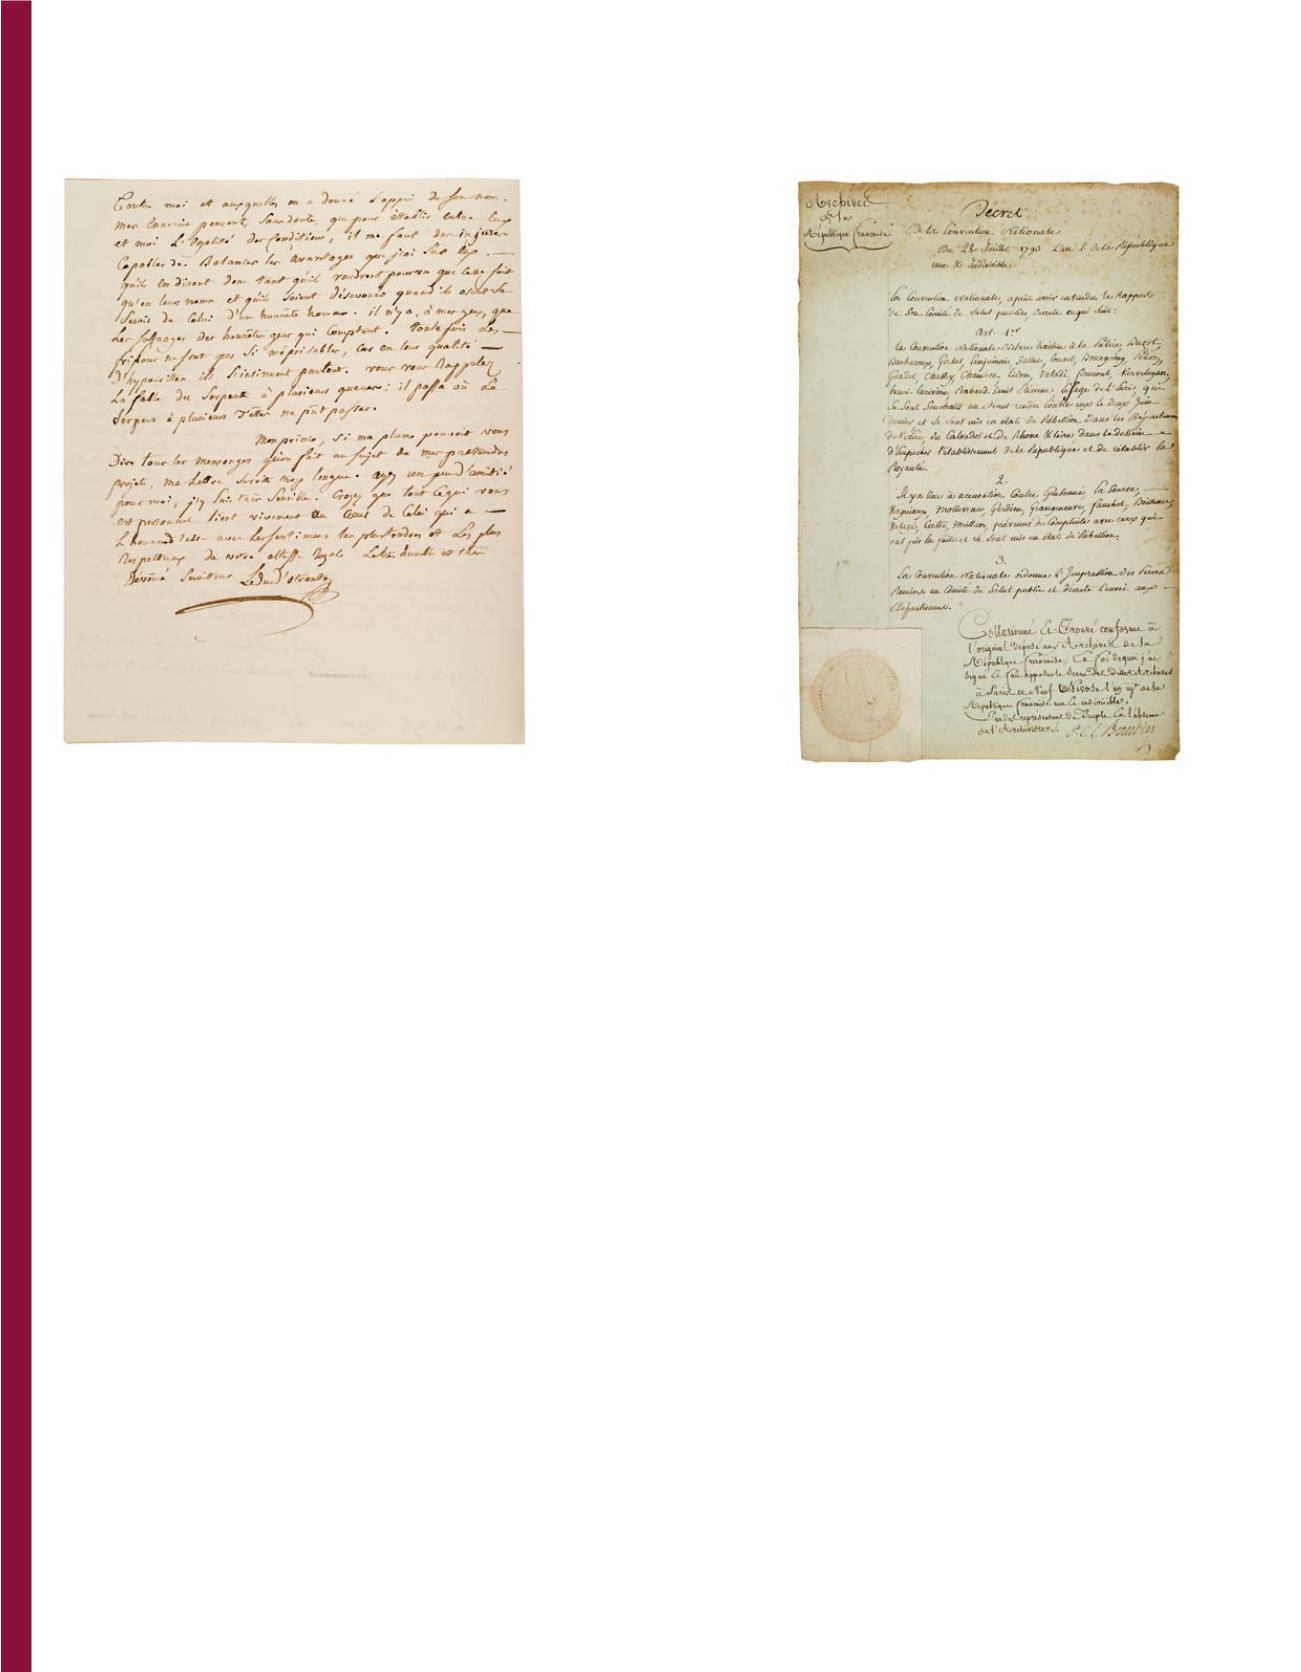 Contre moi et auxquelles on a donné l'appui de son nom.
Mes Ennemis pensent, sans doute, que pour établir entre Eux
et moi L'Egalité des Conditions, il me faut des injures
Capables de Balancer les avantages que j'ai sur Eux. —
qu'ils en disent donc tant qu'il voudront pourvu que cela soit
qu'en leurs noms et qu'ils soient désavoués quand ils osent se
servir de Celui d'un honnête homme. il n'y a, à mes yeux, que
Les suffrages des honnêtes gens qui Comptent. toutefois Les —
fripons ne sont pas si méprisables, car en leur qualité —
D'hypocrites ils s'insinuent partout. vous vous Rappelez
La fable du Serpent à plusieurs queues: il passa où Le
Serpent à plusieurs Têtes ne pût passer.
Mon prince, si ma plume pouvoit vous
Dire tous les mensonges qu'on fait au sujet de mes prétendus
projets, ma Lettre seroit trop longue. ayez un peu d'amitié
pour moi, j'y suis très sensible. Croyez que tout ce qui vous
est personnel tient vivement au Coeur de Celui qui a —
L'honneur d'être avec les sentimens les plus tendres et Les plus
Respectueux de votre altesse Royale Le très humble et très
Dévoué Serviteur Le Duc d'otrante
Archives
de la
République Française
Décret
De la Convention Nationale
Du 28 Juillet 1793 L'an 2 de la République
une & Indivisible.
La Convention Nationale, après avoir entendu le Rapport
de Son Comité de Salut public, décrete ce qui suit:
Art. 1er
La Convention Nationale déclare traitres à la Patrie, Buzot,
Barbaroux, Gorsas, Lanjuinais, Salles, Louvet, Bergoeing, Pétion,
Guadet, Chasset, Chambon, Lidon, Valadi, Fermont, Kervelegan,
Henri Larivière, Rabaud Saint Etienne, Lesage de L'Eure, qui
se sont soustraits au décret rendu contre eux le deux Juin
dernier et se sont mis en état de Rébellion dans les Départemens
de l'Eure, du Calvados et de Rhone & Loire, dans le dessein
d'empecher l'établissement de la République et de rétablir la
Royauté.
2.
Il y a lieu à accusation Contre Gensonné, La Source,
Vergniaux, Mollevaux, Gardien, Grangeneuve, Fauchet, Boilleau,
Valazé, Cussy, Meillan, prévenus de Complicité avec ceux qui
ont pris la fuite et se sont mis en état de Rébellion.
3.
La Convention Nationale ordonne l'Impression des pièces
Remises au Comité de Salut public et décrete l'envoi aux
Départemens.
Collationné Et Trouvé conforme à
l'original déposé aux Archives de la
République Française; En foi de quoi j'ai
signé Et fait apposer le Sceau des dittes Archives
à Paris ce Neuf Nivôse l'an iije de la
République Française une Et indivisible.
Pr. Du représentant du Peuple En l'absence
de l'Archiviste. P. C. L. Baudin